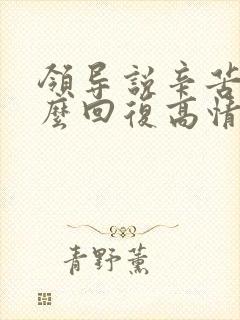 領导説辛苦
麽回復高情
青野薫